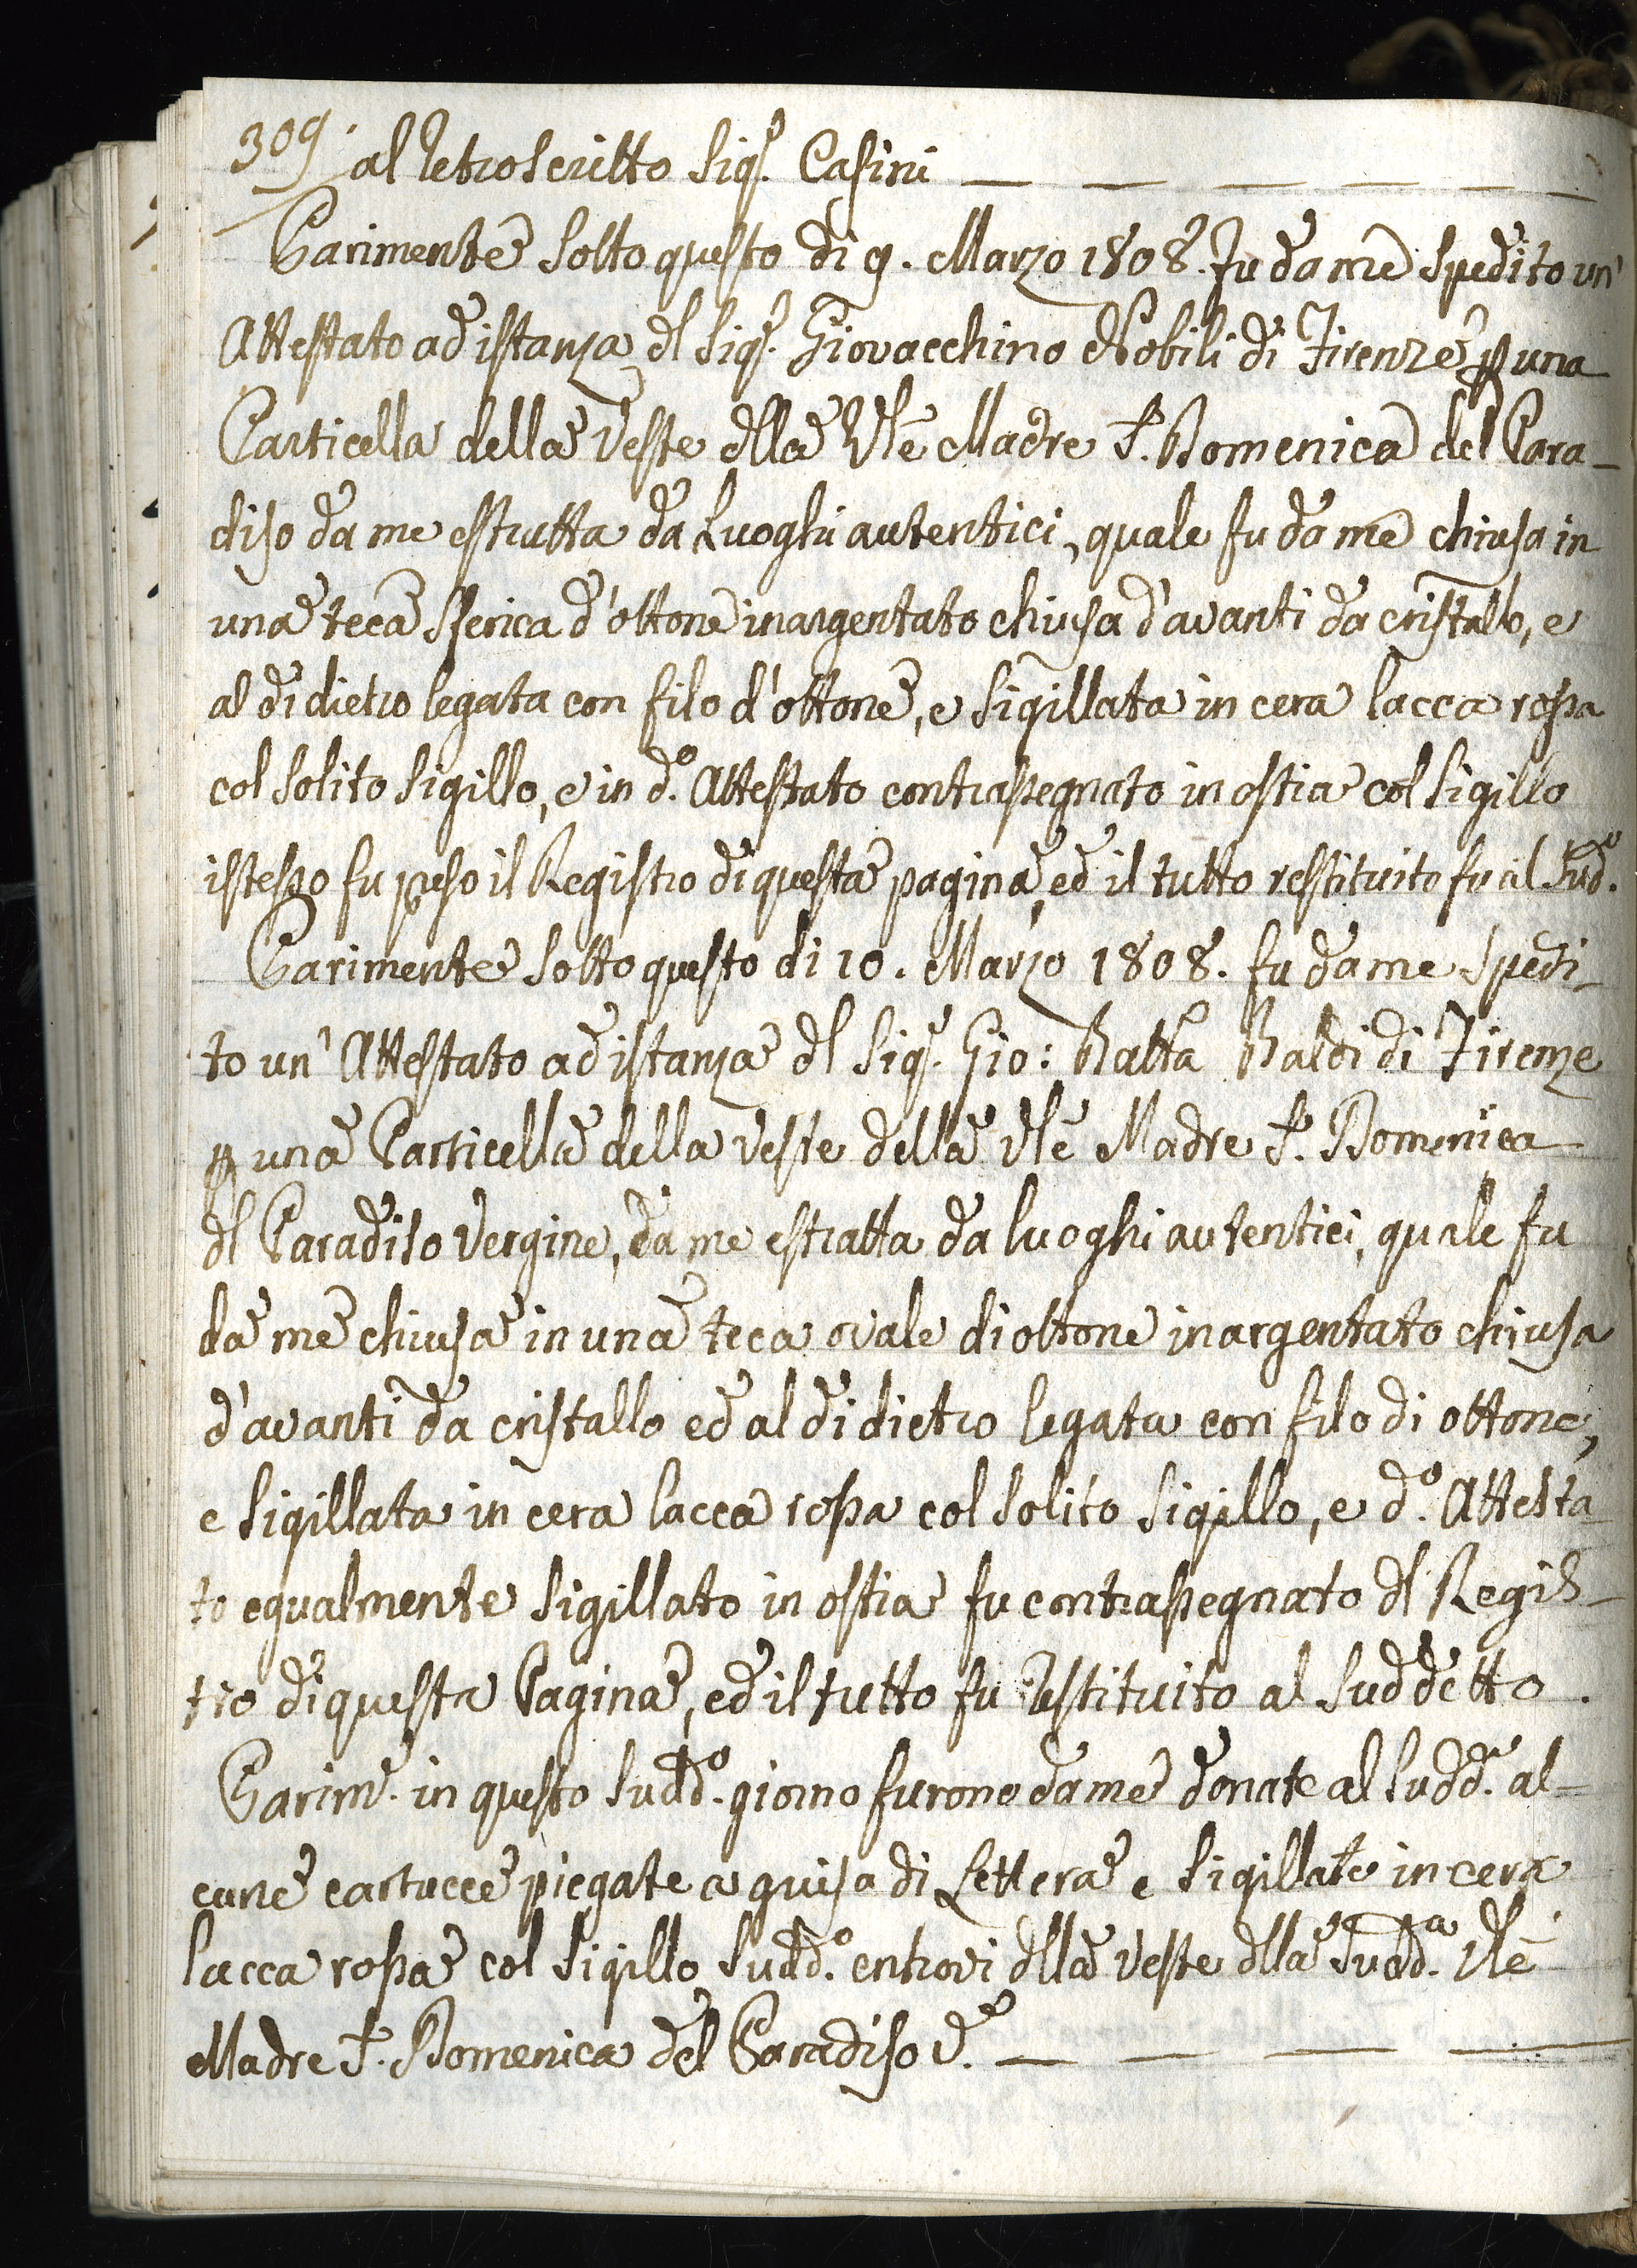 309. al retroscritto Sig.e Casini — — — — — —
Parimente sotto questo dì 9. Marzo 1808. fu da me spedito un'
Attestato ad istanza dl Sig.e Giovacchino Nobili di Firenze p una
Particella della Veste dlla Vle Madre S.r Domenica del Para-
diso da me estratta da Luoghi autentici, quale fu da me chiusa in
una teca sferica d'ottone inargentato chiusa d'avanti da cristallo, e
al di dietro legata con filo d'ottone, e sigillata in cera lacca rossa
col solito sigillo, e in d.o Attestato contrassegnato in ostia col sigillo
istesso fu preso il Registro di questa pagina, ed il tutto restituito fu al Sud.o
Parimente sotto questo di 10. Marzo 1808. fu da me spedi-
to un' Attestato ad istanza dl Sig.e Gio: Batta Baldi di Firenze
p una Particella della Veste della Vle Madre S.r Domenica
dl Paradiso Vergine, da me estratta da luoghi autentici, quale fu
da me chiusa in una teca ovale di ottone inargentato chiusa
d'avanti da cristallo ed al di dietro legata con filo di ottone,
e sigillata in cera lacca rossa col solito sigillo, e d.o Attesta-
to egualmente sigillato in ostia fu contrassegnato dl Regis-
tro di questa Pagina, ed il tutto fu restituito al suddetto.
Parim.e in questo sudd.o giorno furono da me donate al sudd.o al-
cune cartucce piegate a guisa di Lettera e sigillate in cera
lacca rossa col sigillo sudd.o entrovi dlla Veste dlla sudd.a Vle
Madre S.r Domenica del Paradiso V.e — — — —